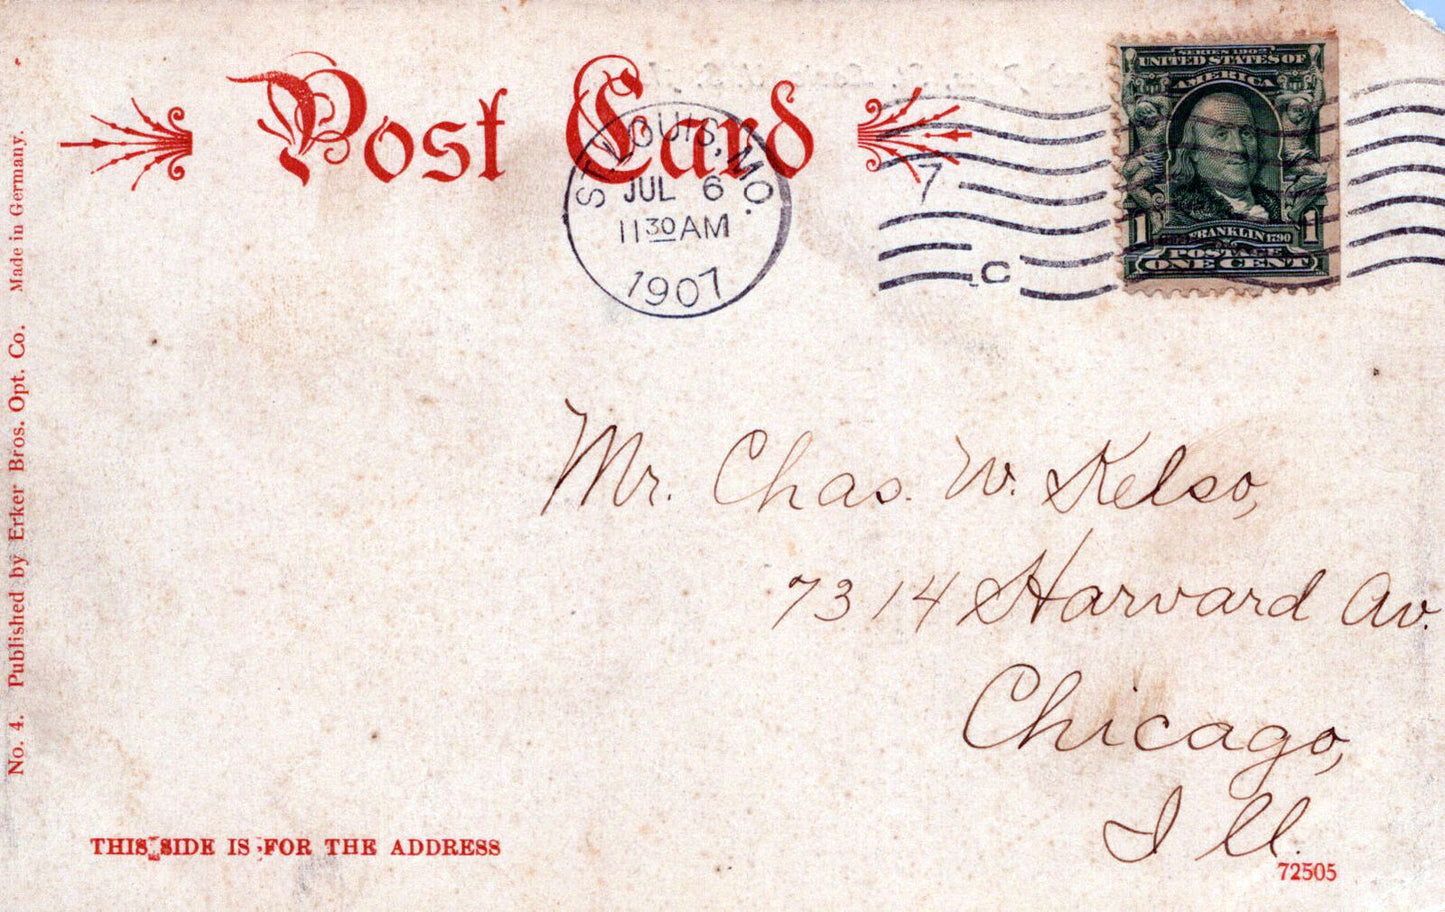 Post Card
ST. LOUIS, MO.
JUL 6
11 30 AM
1907
7
C
SERIES 1902
UNITED STATES OF
AMERICA
1 1
FRANKLIN 1790
POSTAGE
ONE CENT
Mr. Chas. W. Kelso,
7314 Harvard Av.
Chicago,
Ill.
THIS SIDE IS FOR THE ADDRESS
72505
No. 4. Published by Erker Bros. Opt. Co. Made in Germany.